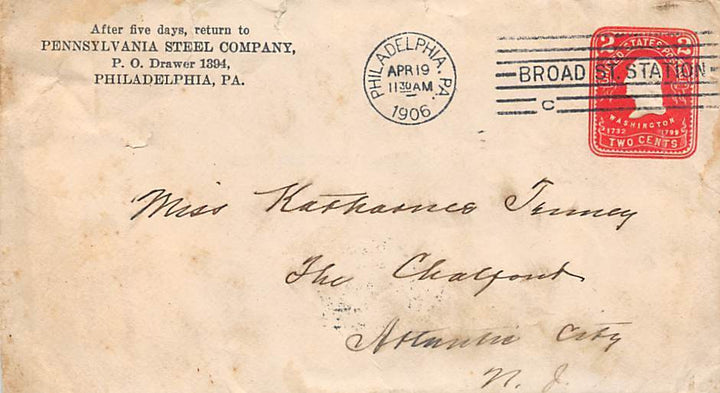 After five days, return to
PENNSYLVANIA STEEL COMPANY,
P. O. Drawer 1394,
PHILADELPHIA, PA.
PHILADELPHIA, PA.
APR 19
11 30 AM
1906
BROAD ST. STATION
C
2 UNITED STATES POSTAGE 2
WASHINGTON
1732 1799
TWO CENTS
Miss Katharine Tenney
The Chalfont
Atlantic City
N. J.